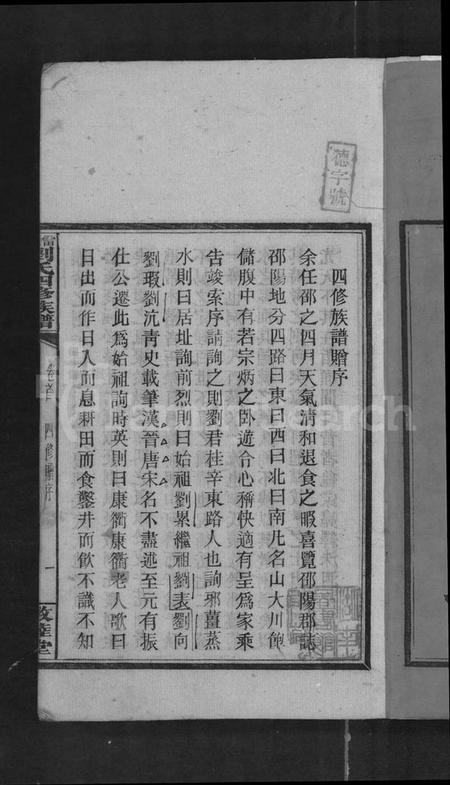 德字號
四修族譜贈序
余任邵之四月天氣清和退食之暇喜覽邵陽郡誌
邵陽地分四路曰東曰西曰北曰南凡名山大川飽
儲腹中有若宗炳之臥遊合心稱快適有呈爲家乘
告竣索序請詢之則劉君桂辛東路人也詢邪薑蒸
水則曰居址詢前烈則曰始祖劉累繼祖劉表劉向
劉瑕劉沆靑史載筆漢晉唐宋名不盡述至元有振
仕公遷此爲始祖詢時英則曰康衢康衢老人歌曰
日出而作日入而息耕田而食鑿井而飲不識不知
劉氏四修族譜
卷首
四修贈序
一
敦睦堂